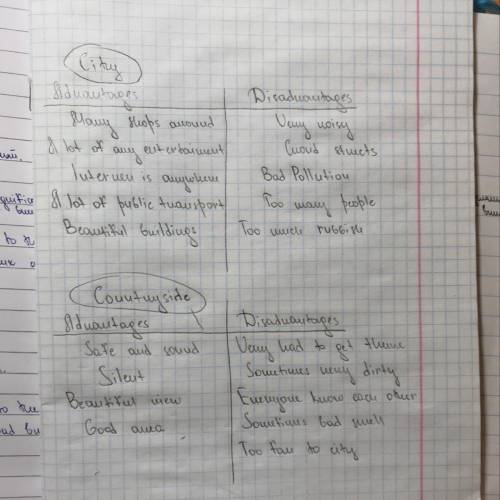 City
Advantages Disadvantages
Many shops around Very noisy
A lot of any entertainment Crowd streets
Internen is anywhere Bad Pollution
A lot of public transport Too many people
Beautiful buildings Too much rubbish
Countryside
Advantages Disadvantages
Safe and sound Very had to get there
Silent Sometimes very dirty
Beautiful view Everyone know each other
Good area Sometimes bad smell
Too far to city